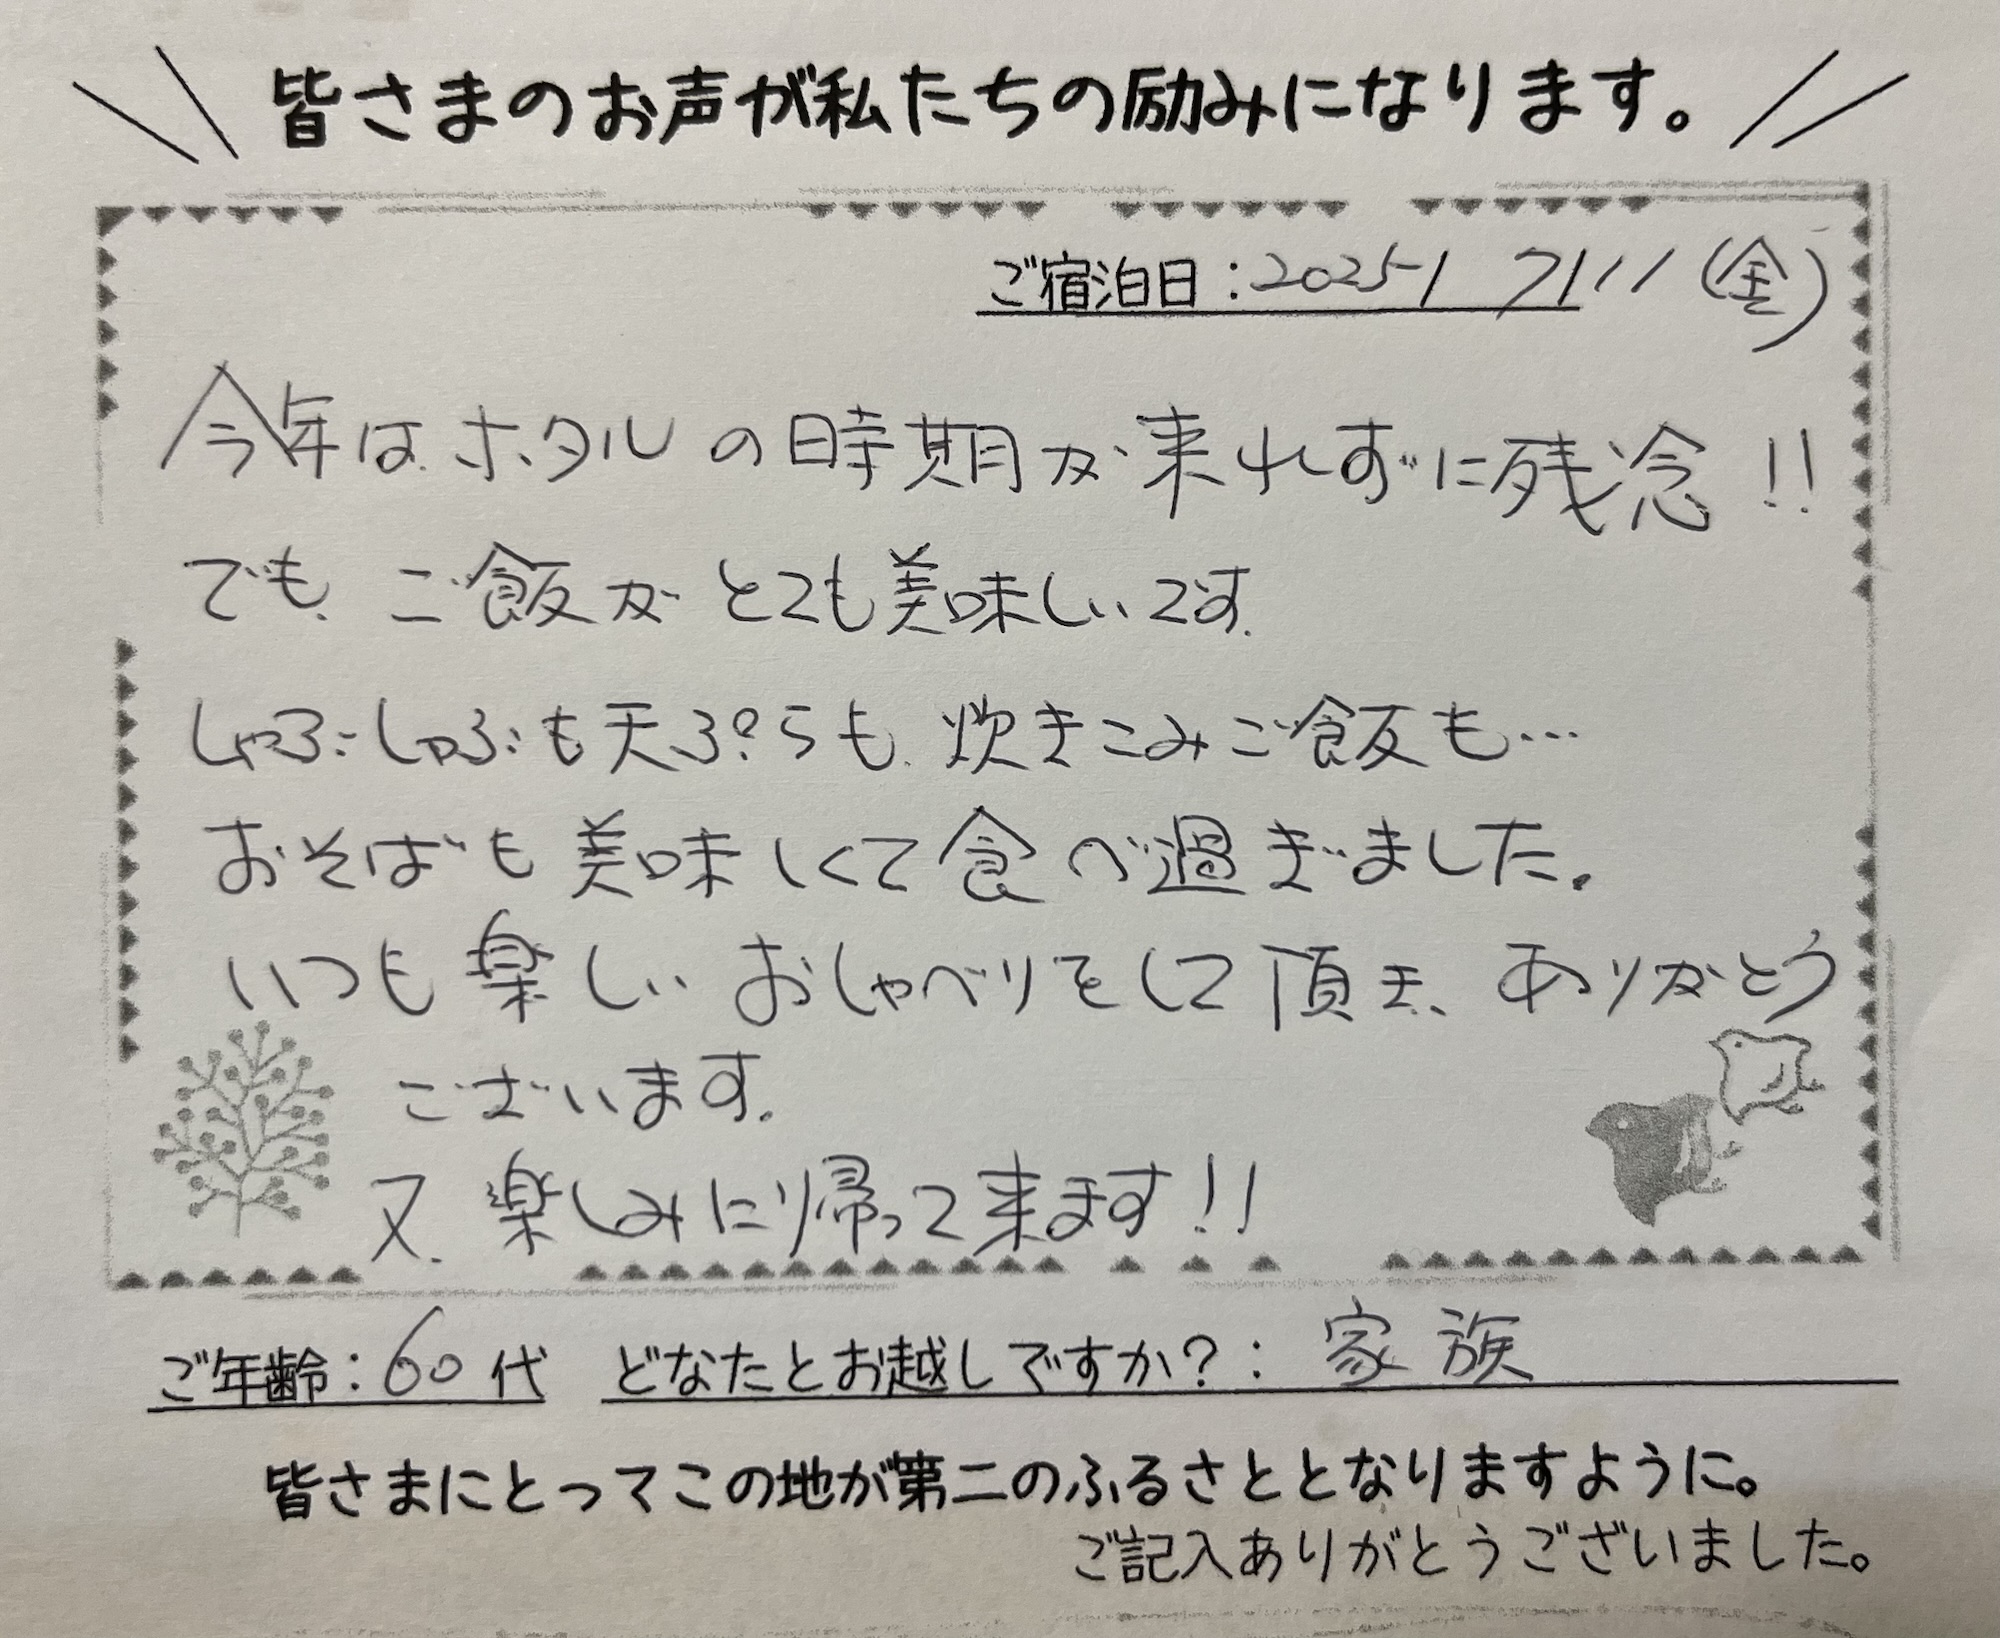 皆さまのお声が私たちの励みになります。
ご宿泊日：2025/ 7/11 (金)
今年はホタルの時期が来れずに残念!!
でも、ご飯がとても美味しいです。
しゃぶしゃぶも天ぷらも、炊きこみご飯も…
おそばも美味しくて食べ過ぎました。
いつも楽しいおしゃべりをして頂き、ありがとう
ございます。
又、楽しみに帰って来ます!!
ご年齢：60代 どなたとお越しですか？：家族
皆さまにとってこの地が第二のふるさととなりますように。
ご記入ありがとうございました。